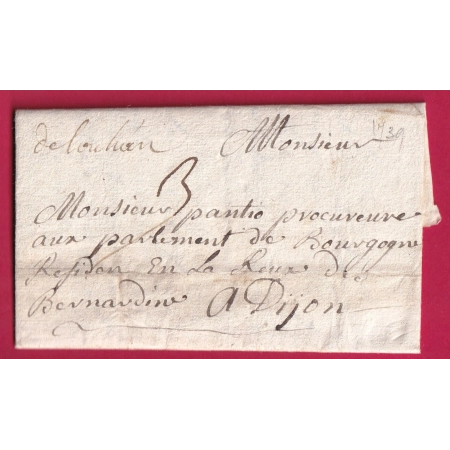 delouhan Monsieur
3
Monsieur pantie procureure
aux parlement de Bourgogne
Residan En La Reux des
Bernardine A Dijon